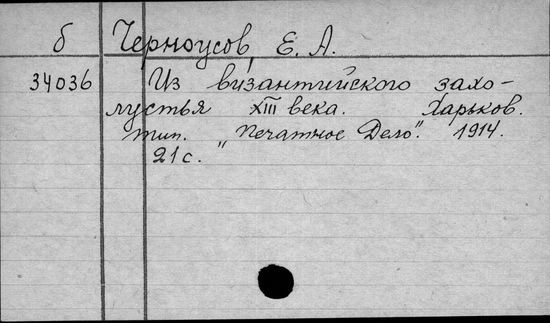 б Черноусов, Е. А.
34036 Из византийского захо-
лустья XIII века. Харьков.
тип. "Печатное Дело". 1914.
21 с.